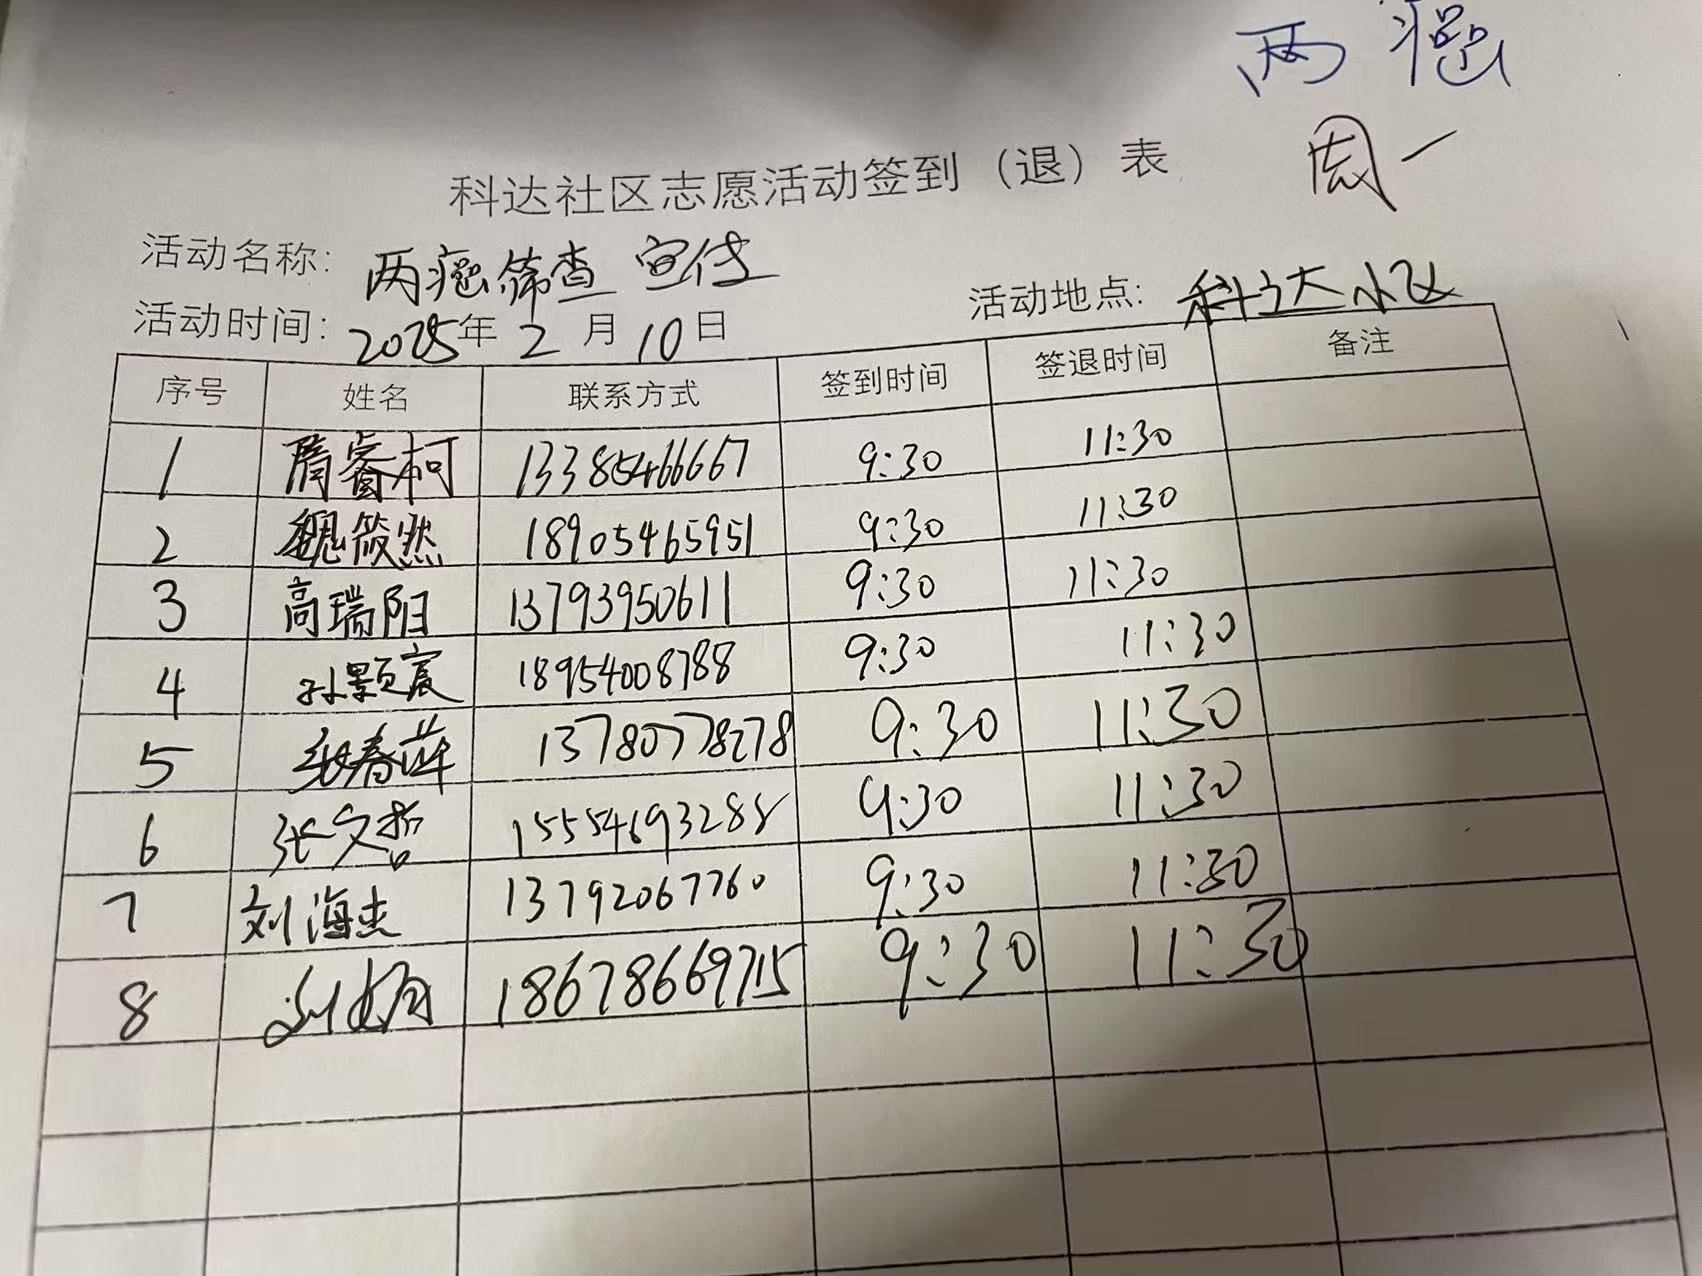 两癌
周一
科达社区志愿活动签到（退）表
活动名称: 两癌筛查 宣传
活动时间: 2025年 2 月 10 日 活动地点: 科达小区
序号 姓名 联系方式 签到时间 签退时间 备注
1 隋睿柯 13385466667 9:30 11:30
2 魏筱然 18905465951 9:30 11:30
3 高瑞阳 13793950611 9:30 11:30
4 孙颢宸 18954008788 9:30 11:30
5 张春萍 13780778278 9:30 11:30
6 张文哲 15554693288 9:30 11:30
7 刘海杰 13792067760 9:30 11:30
8 刘 18678669715 9:30 11:30